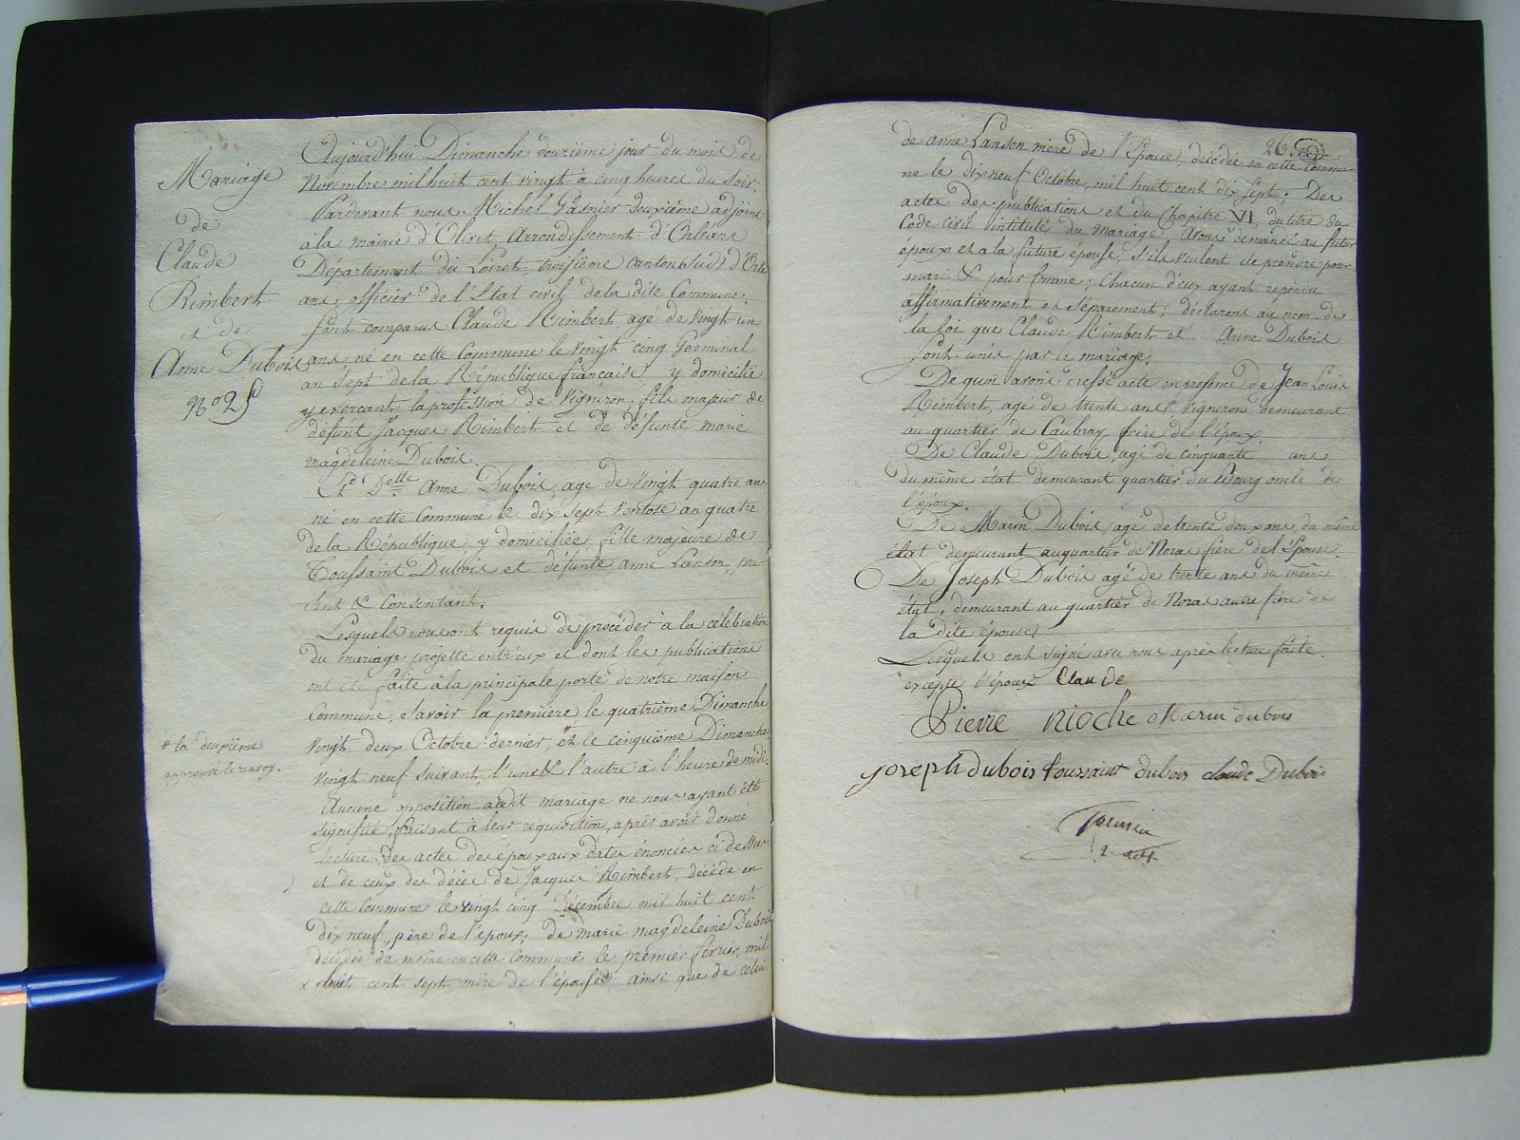 Mariage
de
Claude
Rimbert
et de
Anne Dubois
Aujourd'hui Dimanche douzième jour du mois de
Novembre mil huit cent vingt à cinq heures du soir.
Pardevant nous Michel Garnier deuxième adjoint
à la mairie d'Olivet, Arrondissement d'Orléans
Département du Loiret, troisième canton (sud) d'Orlé
ans, officier de l'Etat civil de la dite Commune;
sont comparus Claude Rimbert agé de vingt un
ans né en cette Commune le vingt cinq Germinal
an sept de la République française, y domicilié
y exerçant la profession de Vigneron, fils majeur de
défunt Jacques Rimbert et de défunte marie
magdeleine Dubois.
Et Delle Anne Dubois, age de vingt quatre ans
né en cette Commune le dix sept ventose an quatre
de la République, y domiciliée, fille majeure de
Toussaint Dubois et défunte anne Lanson, pré
sent & consentant.
Lesquels nous ont requis de procéder à la célébration
du mariage projetté entr'eux et dont les publications
ont été faite à la principale porte de notre maison
Commune, savoir la première le quatrième Dimanche
vingt deux Octobre dernier, et le cinquième Dimanche
vingt neuf suivant, l'une & l'autre à l'heure de midi.
Aucune opposition audit mariage ne nous ayant été
signifié, faisant à leur requisition, après avoir donné
lecture des actes des époux aux dates énoncées ci dessus
et de ceux des décès de Jacques Rimbert, décédé en
cette Commune le vingt cinq Décembre mil huit cent
dix neuf, père de l'époux; de marie magdeleine Dubois
décédée de même en cette Commune le premier mil
huit cent sept, mère de ainsi que de celui
la deuxième
de anne Lanson mère de l'Epouse, décédée en cette commu-
ne le dix neuf Octobre, mil huit cent dix sept; Des
actes des publications et du Chapitre VI du titre du
Code civil intitulé du mariage. Avons demandé au futur
époux et à la future épouse, s'ils veulent se prendre pour
mari & pour femme; chacun d'eux ayant répondu
affirmativement et séparément; déclarons au nom de
la loi que Claude Rimbert et Anne Dubois
sont unis par le mariage.
De quoi avons dressé acte en présence de Jean Louis
Rimbert, agé de trente ans, Vigneron demeurant
au quartier de Caubray, frère de l'époux.
De Claude Dubois, agé de cinquante ans
du même état demeurant quartier du Bourg oncle de
l'époux.
De Marin Dubois, agé de trente deux ans, du même
état demeurant au quartier de Noras frère de l'Epouse.
De Joseph Dubois agé de trente ans du même
état, demeurant au quartier de Noras autre frère de
la dite épouse
Lesquels ont signé avec nous après lecture faite.
excepté l'époux Claude
Pierre rioche Marin dubois
joseph dubois toussaint dubois claude Dubois